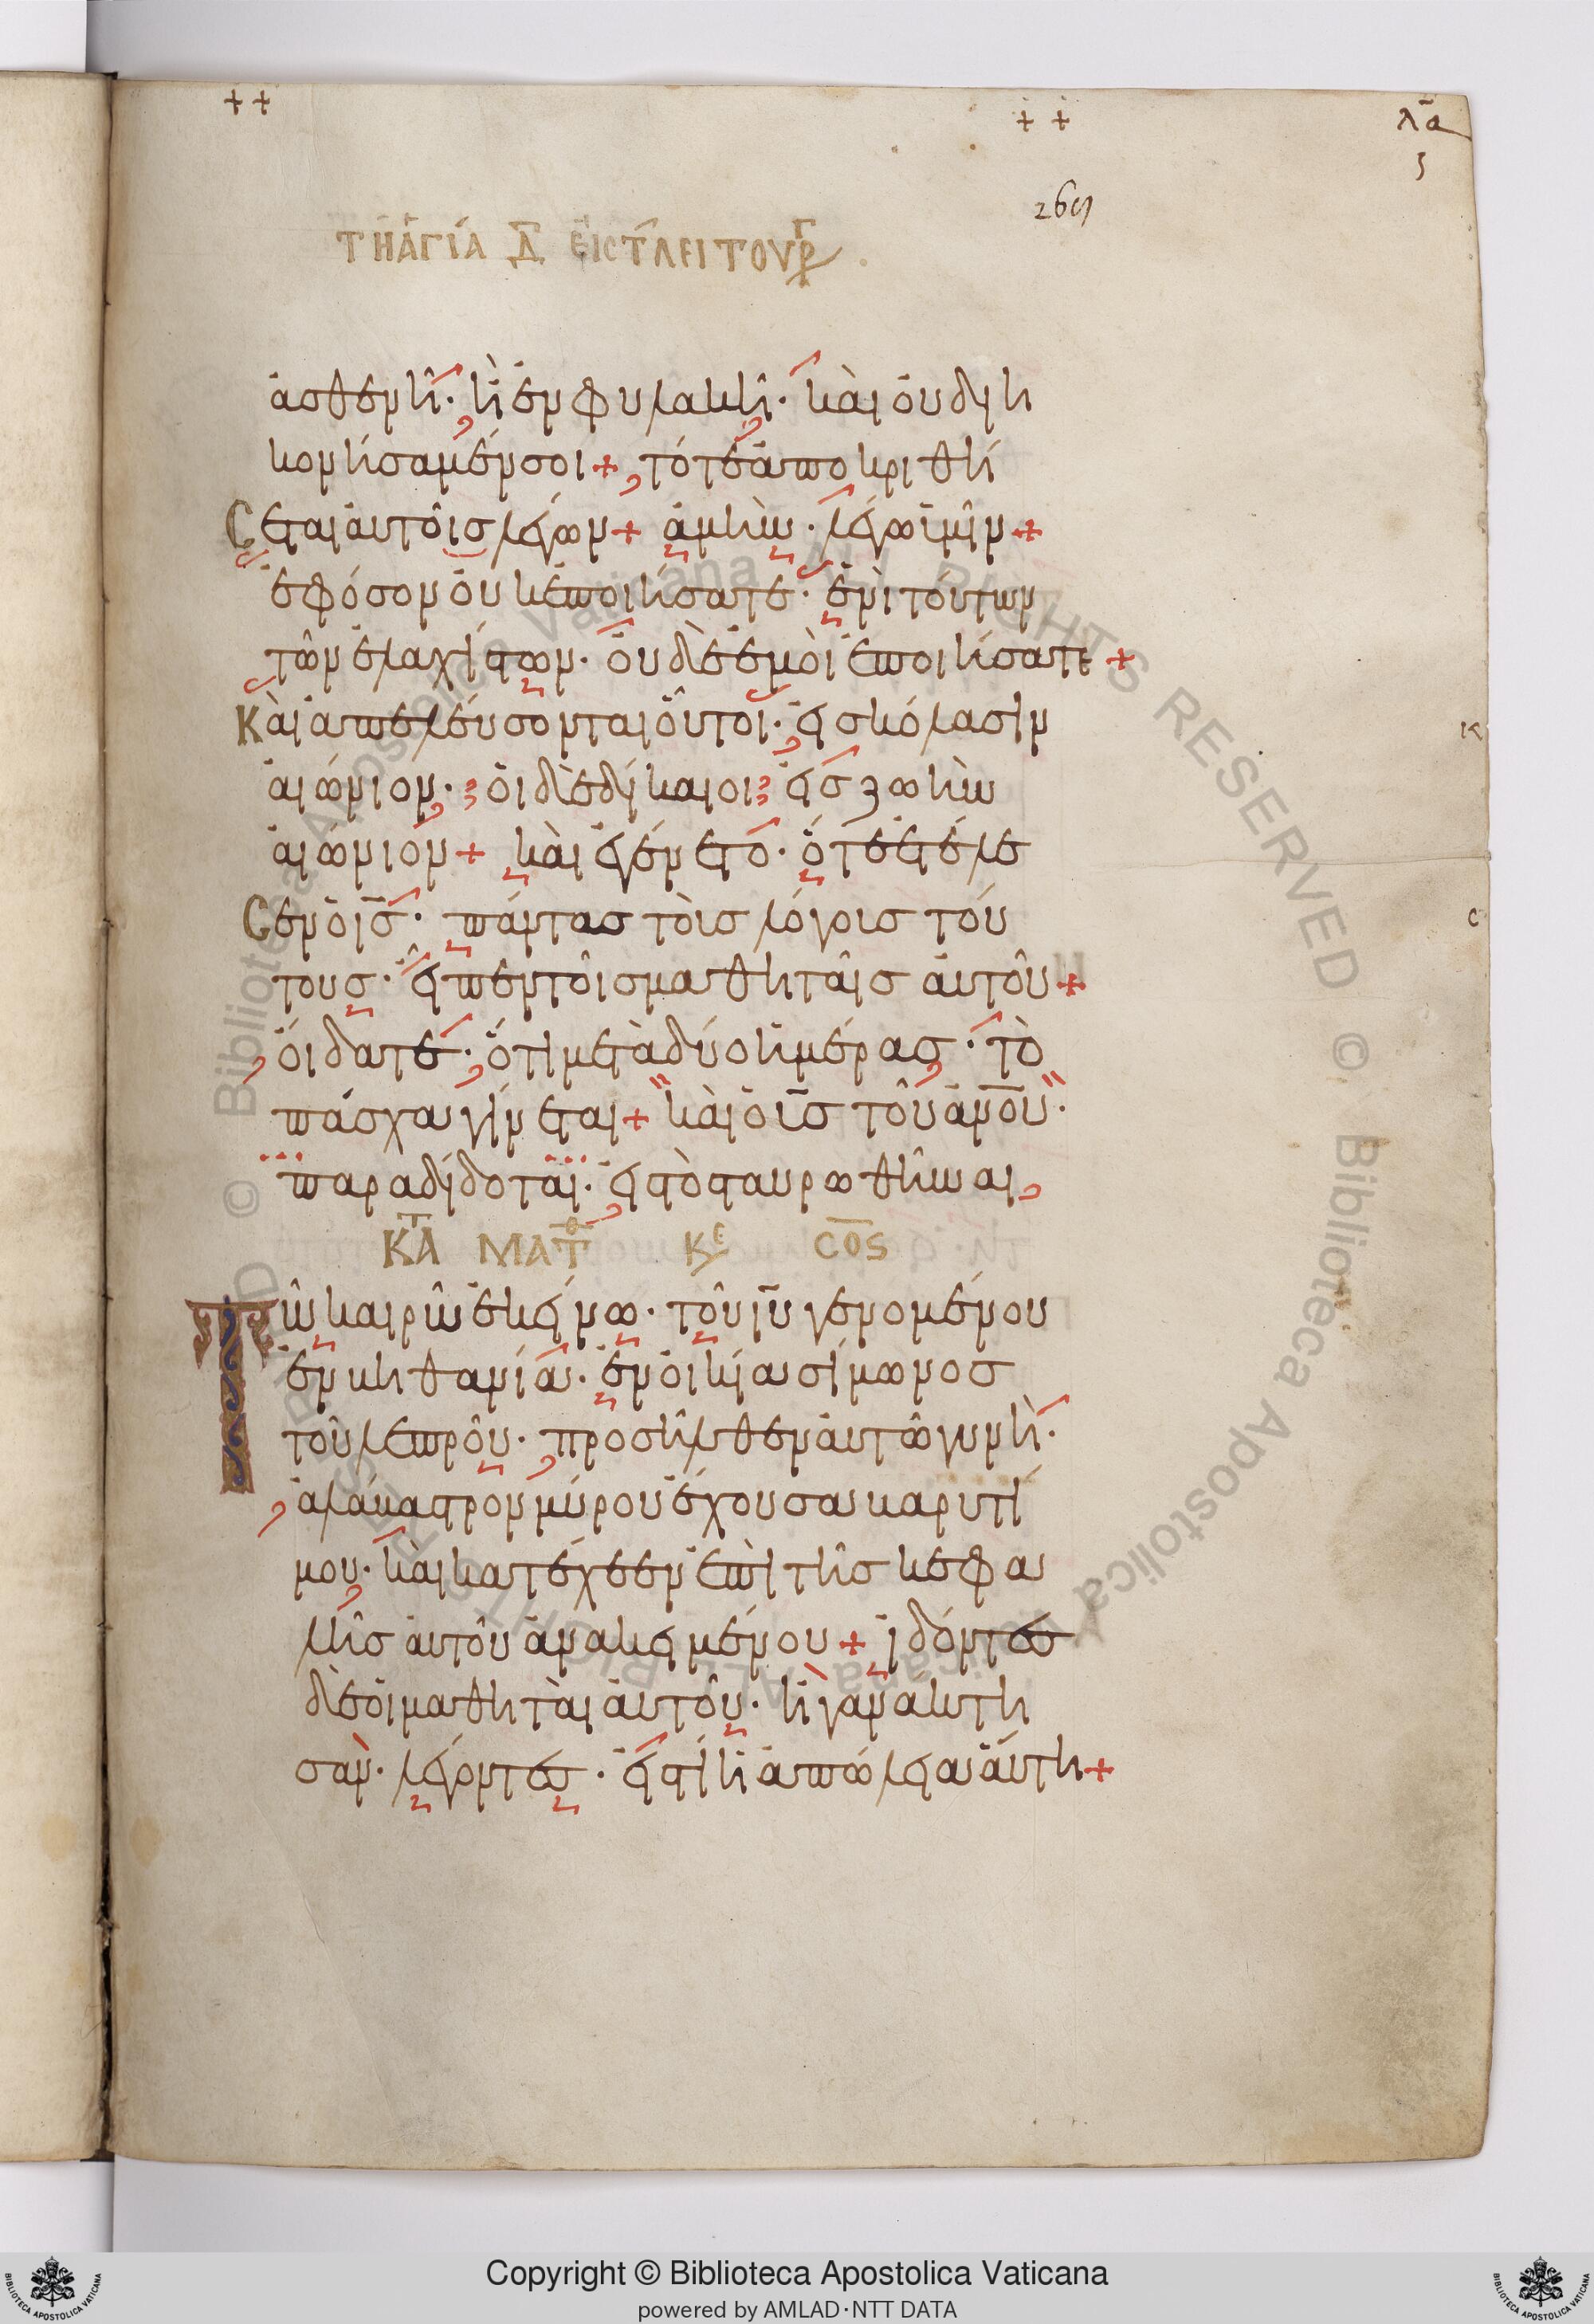 λ̄α
269
ΤΗ ἉΓΊΑ Δ̄ ΕΙΣ Τ ΛΕΙΤΟΥΡΓ
ἀσθενῆ· ἢ ἐν φυλακῆ· καὶ οὐ δϊη
κονήσαμέν σοι + τότε ἀποκριθή
Σεται αὐτοῖς λέγων + ἀμὴν· λέγω ὑμῖν +
ἐφόσον οὐκ ἐποιήσατε· ἑνὶ τούτων
τῶν ἐλαχίστων· οὐδὲ ἐμοὶ ἐποιήσατε +
Καὶ ἀπελεύσονται οὗτοι· εἰς κόλασιν
αἰώνιον· οἱ δὲ δίκαιοι εἰς ζωὴν
αἰώνιον + καὶ ἐγένετο· ὅτε ἐτέλε
Σεν ὁ ῑς̄· πάντας τοὺς λόγους τού
τους· εἶπεν τοῖς μαθηταῖς αὐτοῦ +
οἴδατε· ὅτι μετὰ δύο ἡμέρας· τὸ
πάσχα γίνεται + καὶ ὁ ῡς̄ τοῦ ἀν̄ο̄ῡ·
παραδίδοται· εἰς τὸ σταυρωθῆναι
ΚΑΤ ΜΑΤΘ ΚΕ ΣΟΣ
Τῶ καιρῶ ἐκείνω· τοῦ ῑῡ γενομένου
ἐν βηθανία· ἐν οἰκία σίμωνος
τοῦ λεπροῦ· προσῆλθεν αὐτῶ γυνὴ·
ἀλάβαστρον μύρου ἔχουσα βαρυτί
μου· καὶ κατέχεεν ἐπὶ τῆς κεφα
λῆς αὐτοῦ ἀνακειμένου + ἰδόντες
δὲ οἱ μαθηταὶ αὐτοῦ· ἠγανάκτη
σαν· λέγοντες· εἰς τί ἡ ἀπώλεια αὕτη +
Copyright © Biblioteca Apostolica Vaticana
powered by AMLAD·NTT DATA